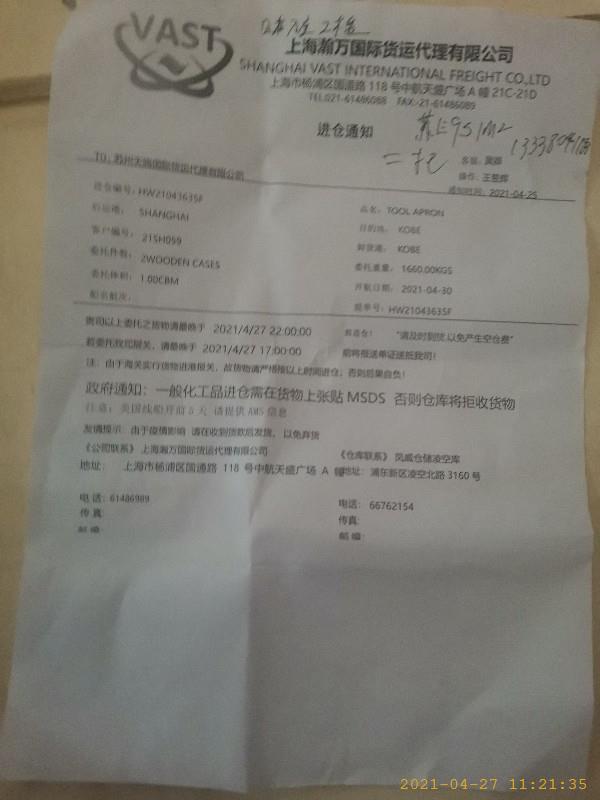 VAST
上海瀚万国际货运代理有限公司
SHANGHAI VAST INTERNATIONAL FREIGHT CO.,LTD
上海市杨浦区国通路 118 号中航天盛广场 A 幢 21C-21D
TEL:021-61486088 FAX:-21-61486089
进仓通知
二托
TO: 苏州大瑞国际货运代理有限公司
操作: 王昱辉
通知时间: 2021-04-25
进仓编号: HW2104363SF
品名: TOOL APRON
启运港: SHANGHAI
目的地: KOBE
客户编号: 21SH059
卸货港: KOBE
委托件数: 2WOODEN CASES
委托重量: 1660.00KGS
委托体积: 1.00CBM
开航日期: 2021-04-30
船名航次:
提单号: HW2104363SF
贵司以上委托之货物请最晚于 2021/4/27 22:00:00 前进仓! "请及时到货,以免产生空仓费"
若委托我司报关, 请最晚于 2021/4/27 17:00:00 前将报送单证送抵我司!
注: 由于海关实行货物进港报关, 故货物请严格按以上时间进仓, 否则后果自负!
政府通知: 一般化工品进仓需在货物上张贴 MSDS 否则仓库将拒收货物
注意: 美国线船开前 5 天 请提供 AMS 信息
友情提示: 由于疫情影响 请在收到货款后发货, 以免弃货
《公司联系》 上海瀚万国际货运代理有限公司
《仓库联系》 凤威仓储凌空库
地址: 上海市杨浦区国通路 118 号中航天盛广场 A 幢
地址: 浦东新区凌空北路 3160 号
电 话: 61486989
电话: 66762154
传真:
传真:
邮编:
邮编:
2021-04-27 11:21:35